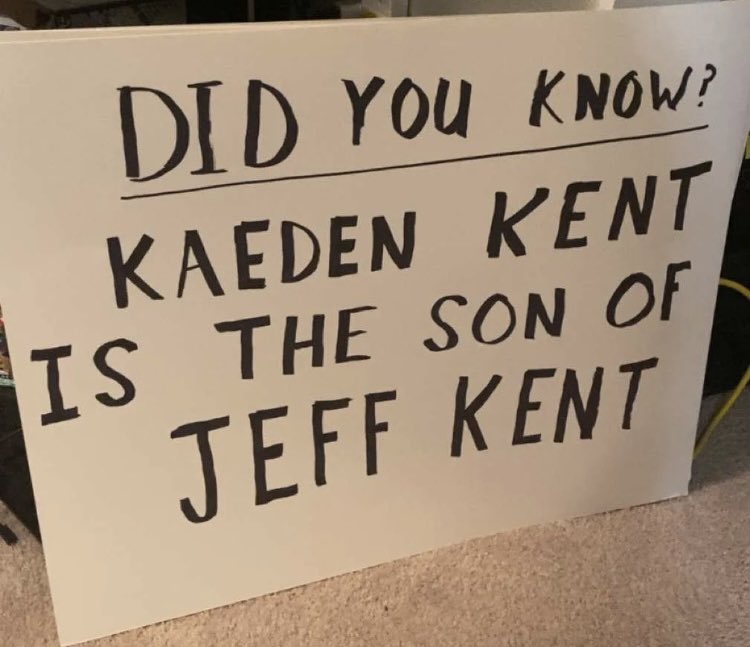 DID YOU KNOW?
KAEDEN KENT
IS THE SON OF
JEFF KENT